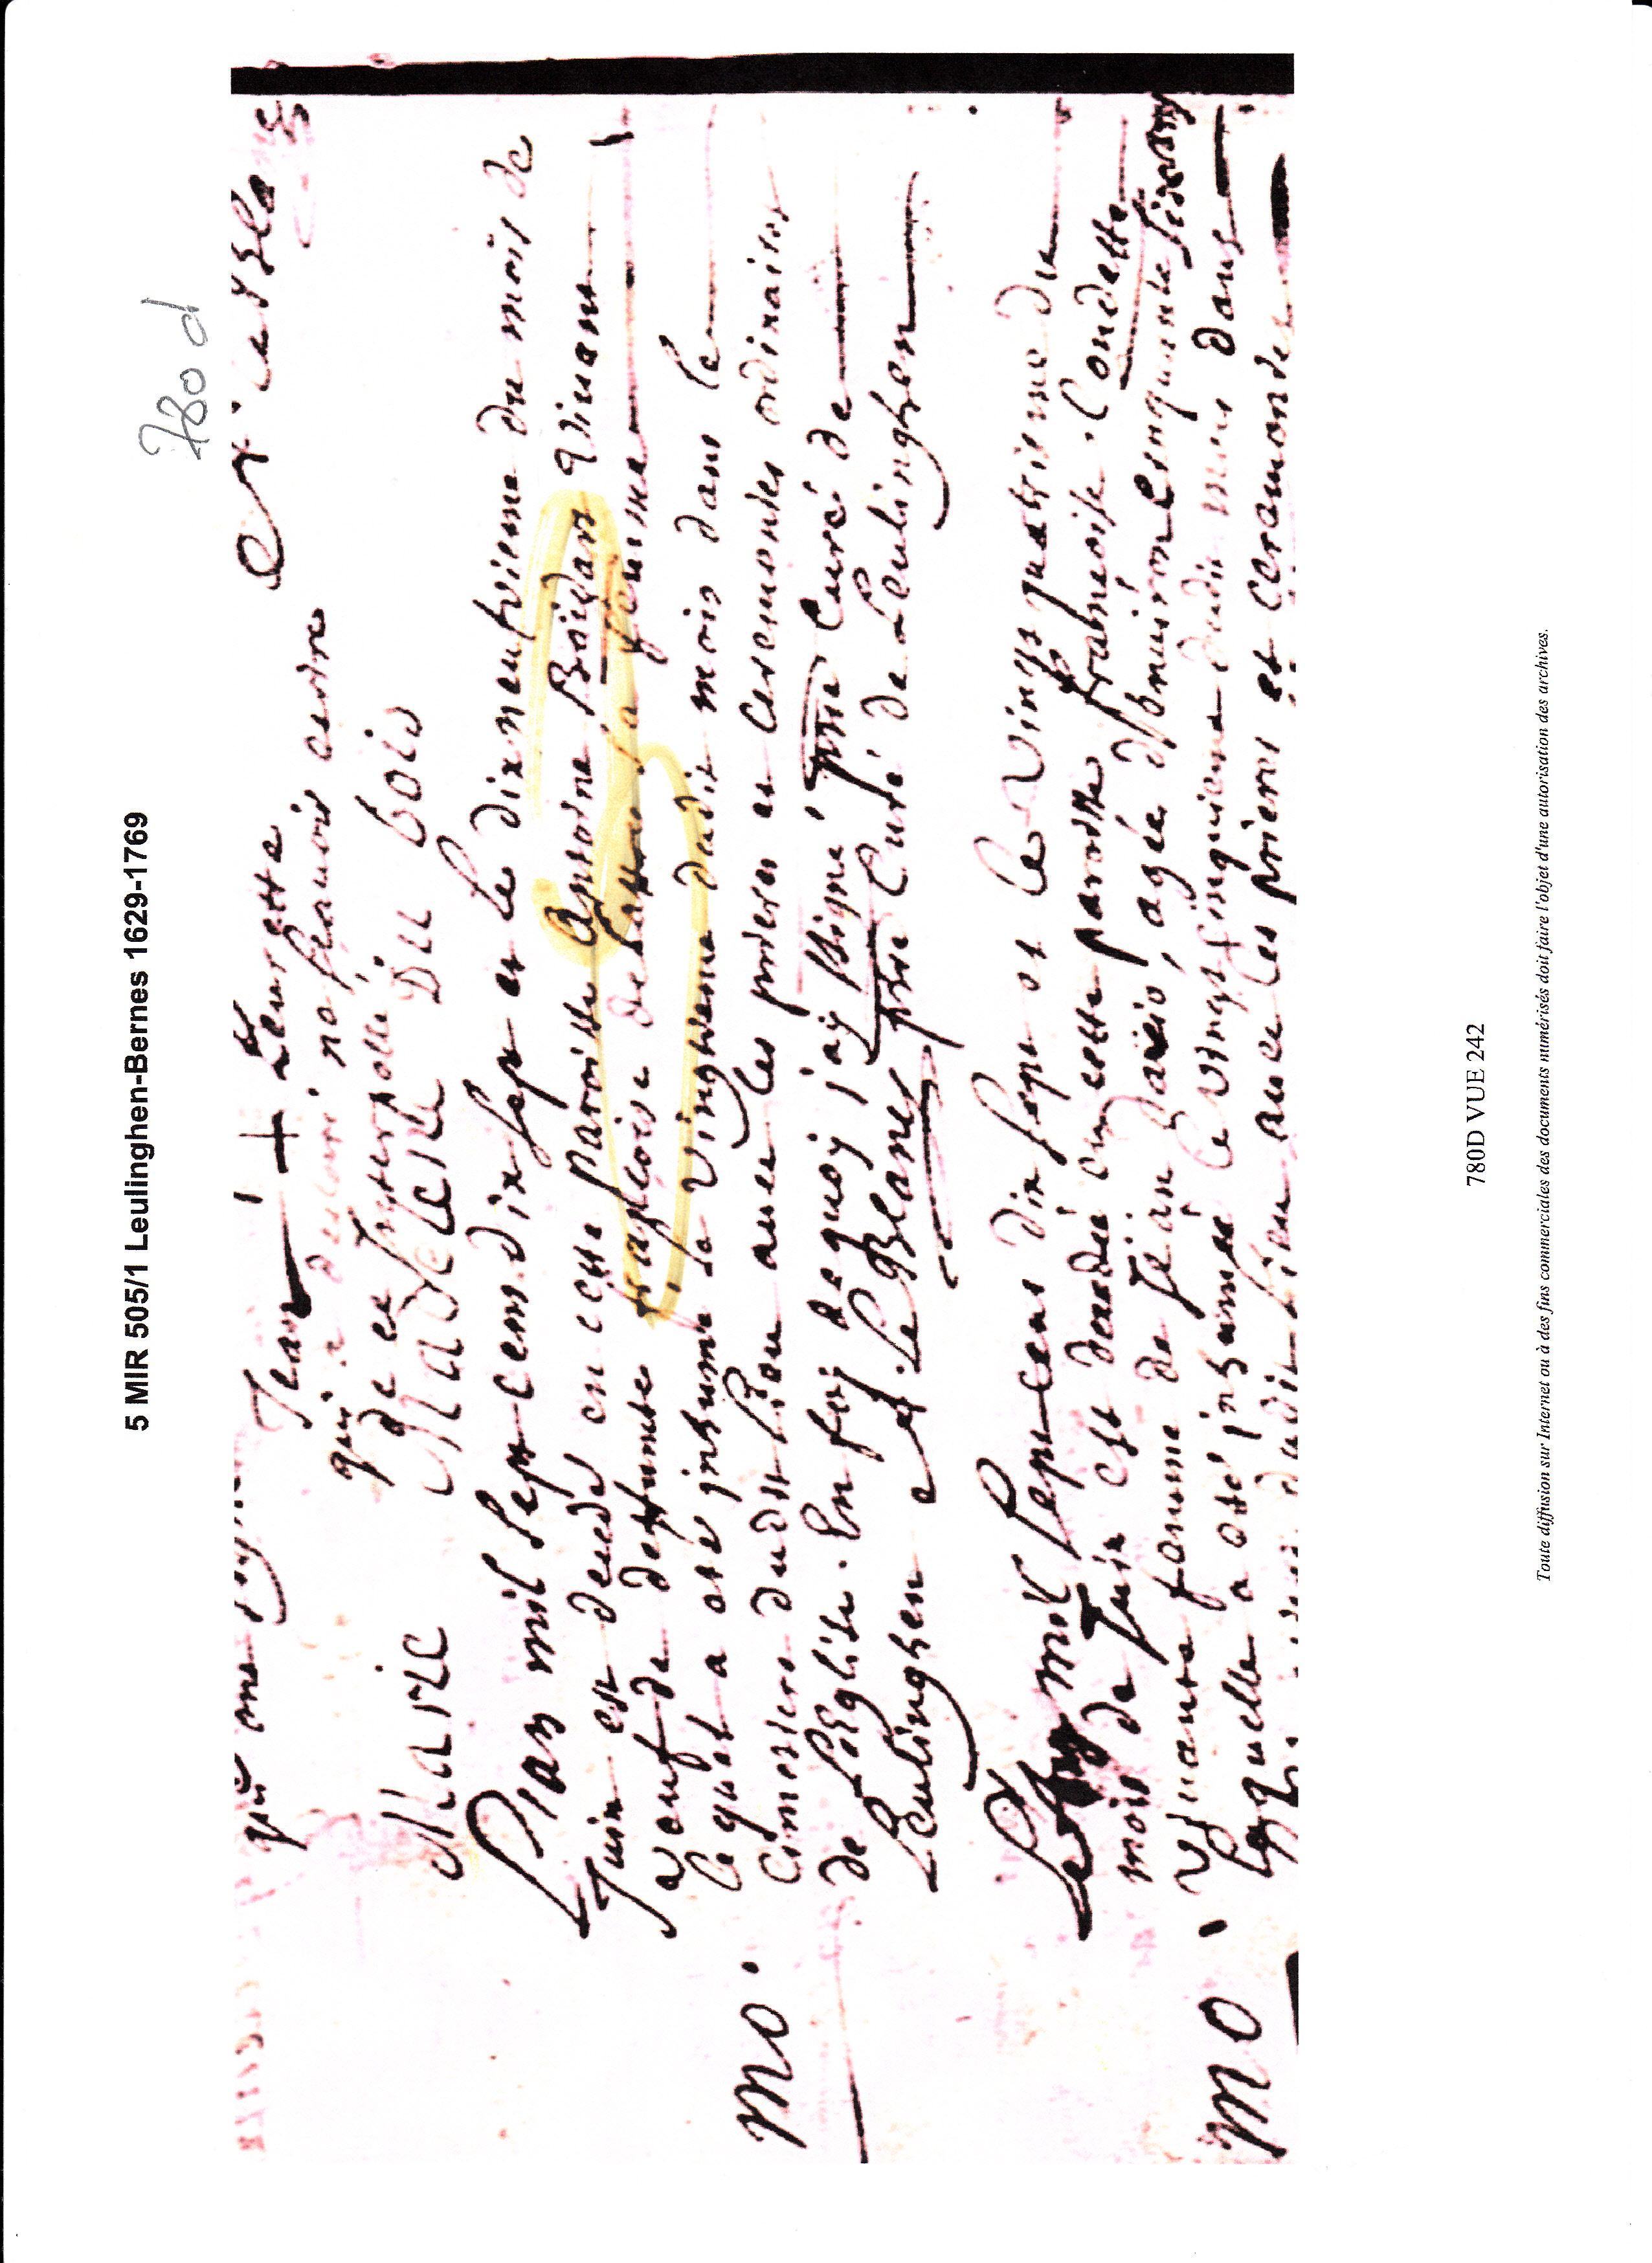 5 MIR 505/1 Leulinghen-Bernes 1629-1769
780 d
qui ont signé Jean + Leurette
qui a declaré ne scavoir ecrire
de ce interpellé
Marie Madeleine Du bois
L'an mil sept cens dix sept et le dix neufvieme du mois de
Juin est decedé en cette Paroisse Antoine Boidar vivant
veuf de deffuncte françoise sa femme
lequel a esté inhumé le vingtieme dudit mois dans le
Cimestiere dudit lieu avec les prieres et Ceremonies ordinaires
de l'église. En foy de quoy j'ay signé prie Curé de
Leulinghen et. Le Blanc prie Curé de Leulinghen
mo.
L'an mil sept cens dix sept et le vingt quatrieme du
mois de Juin est decedée en cette paroisse françoise Condette
vivante femme de Jean Dario, agée d'environ Cinquante six ans
laquelle a esté inhumée le vingt cinquieme dudit mois dans
mo.
dudit lieu avec les prieres et Ceremonies
780D VUE 242
Toute diffusion sur Internet ou à des fins commerciales des documents numérisés doit faire l'objet d'une autorisation des archives.